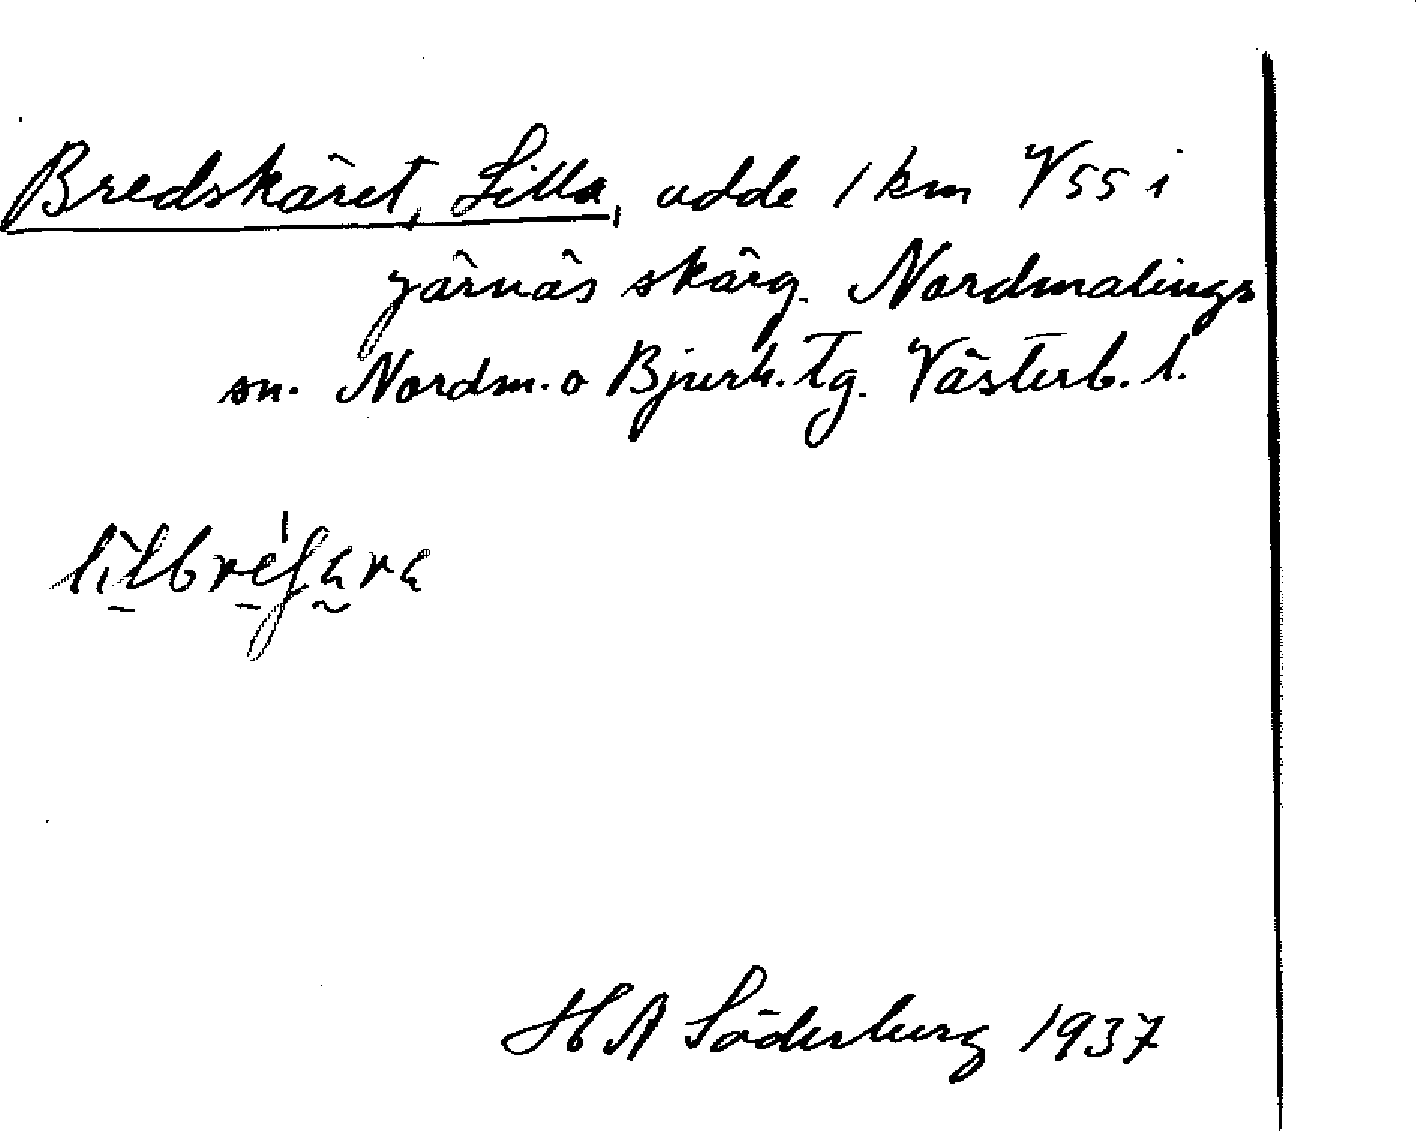 Bredskäret, Lilla, udde 1 km VSS i
Järnäs skärg. Nordmalings
sn. Nordm. o Bjurh. Tg. Västerb. l.
H A Söderberg 1937